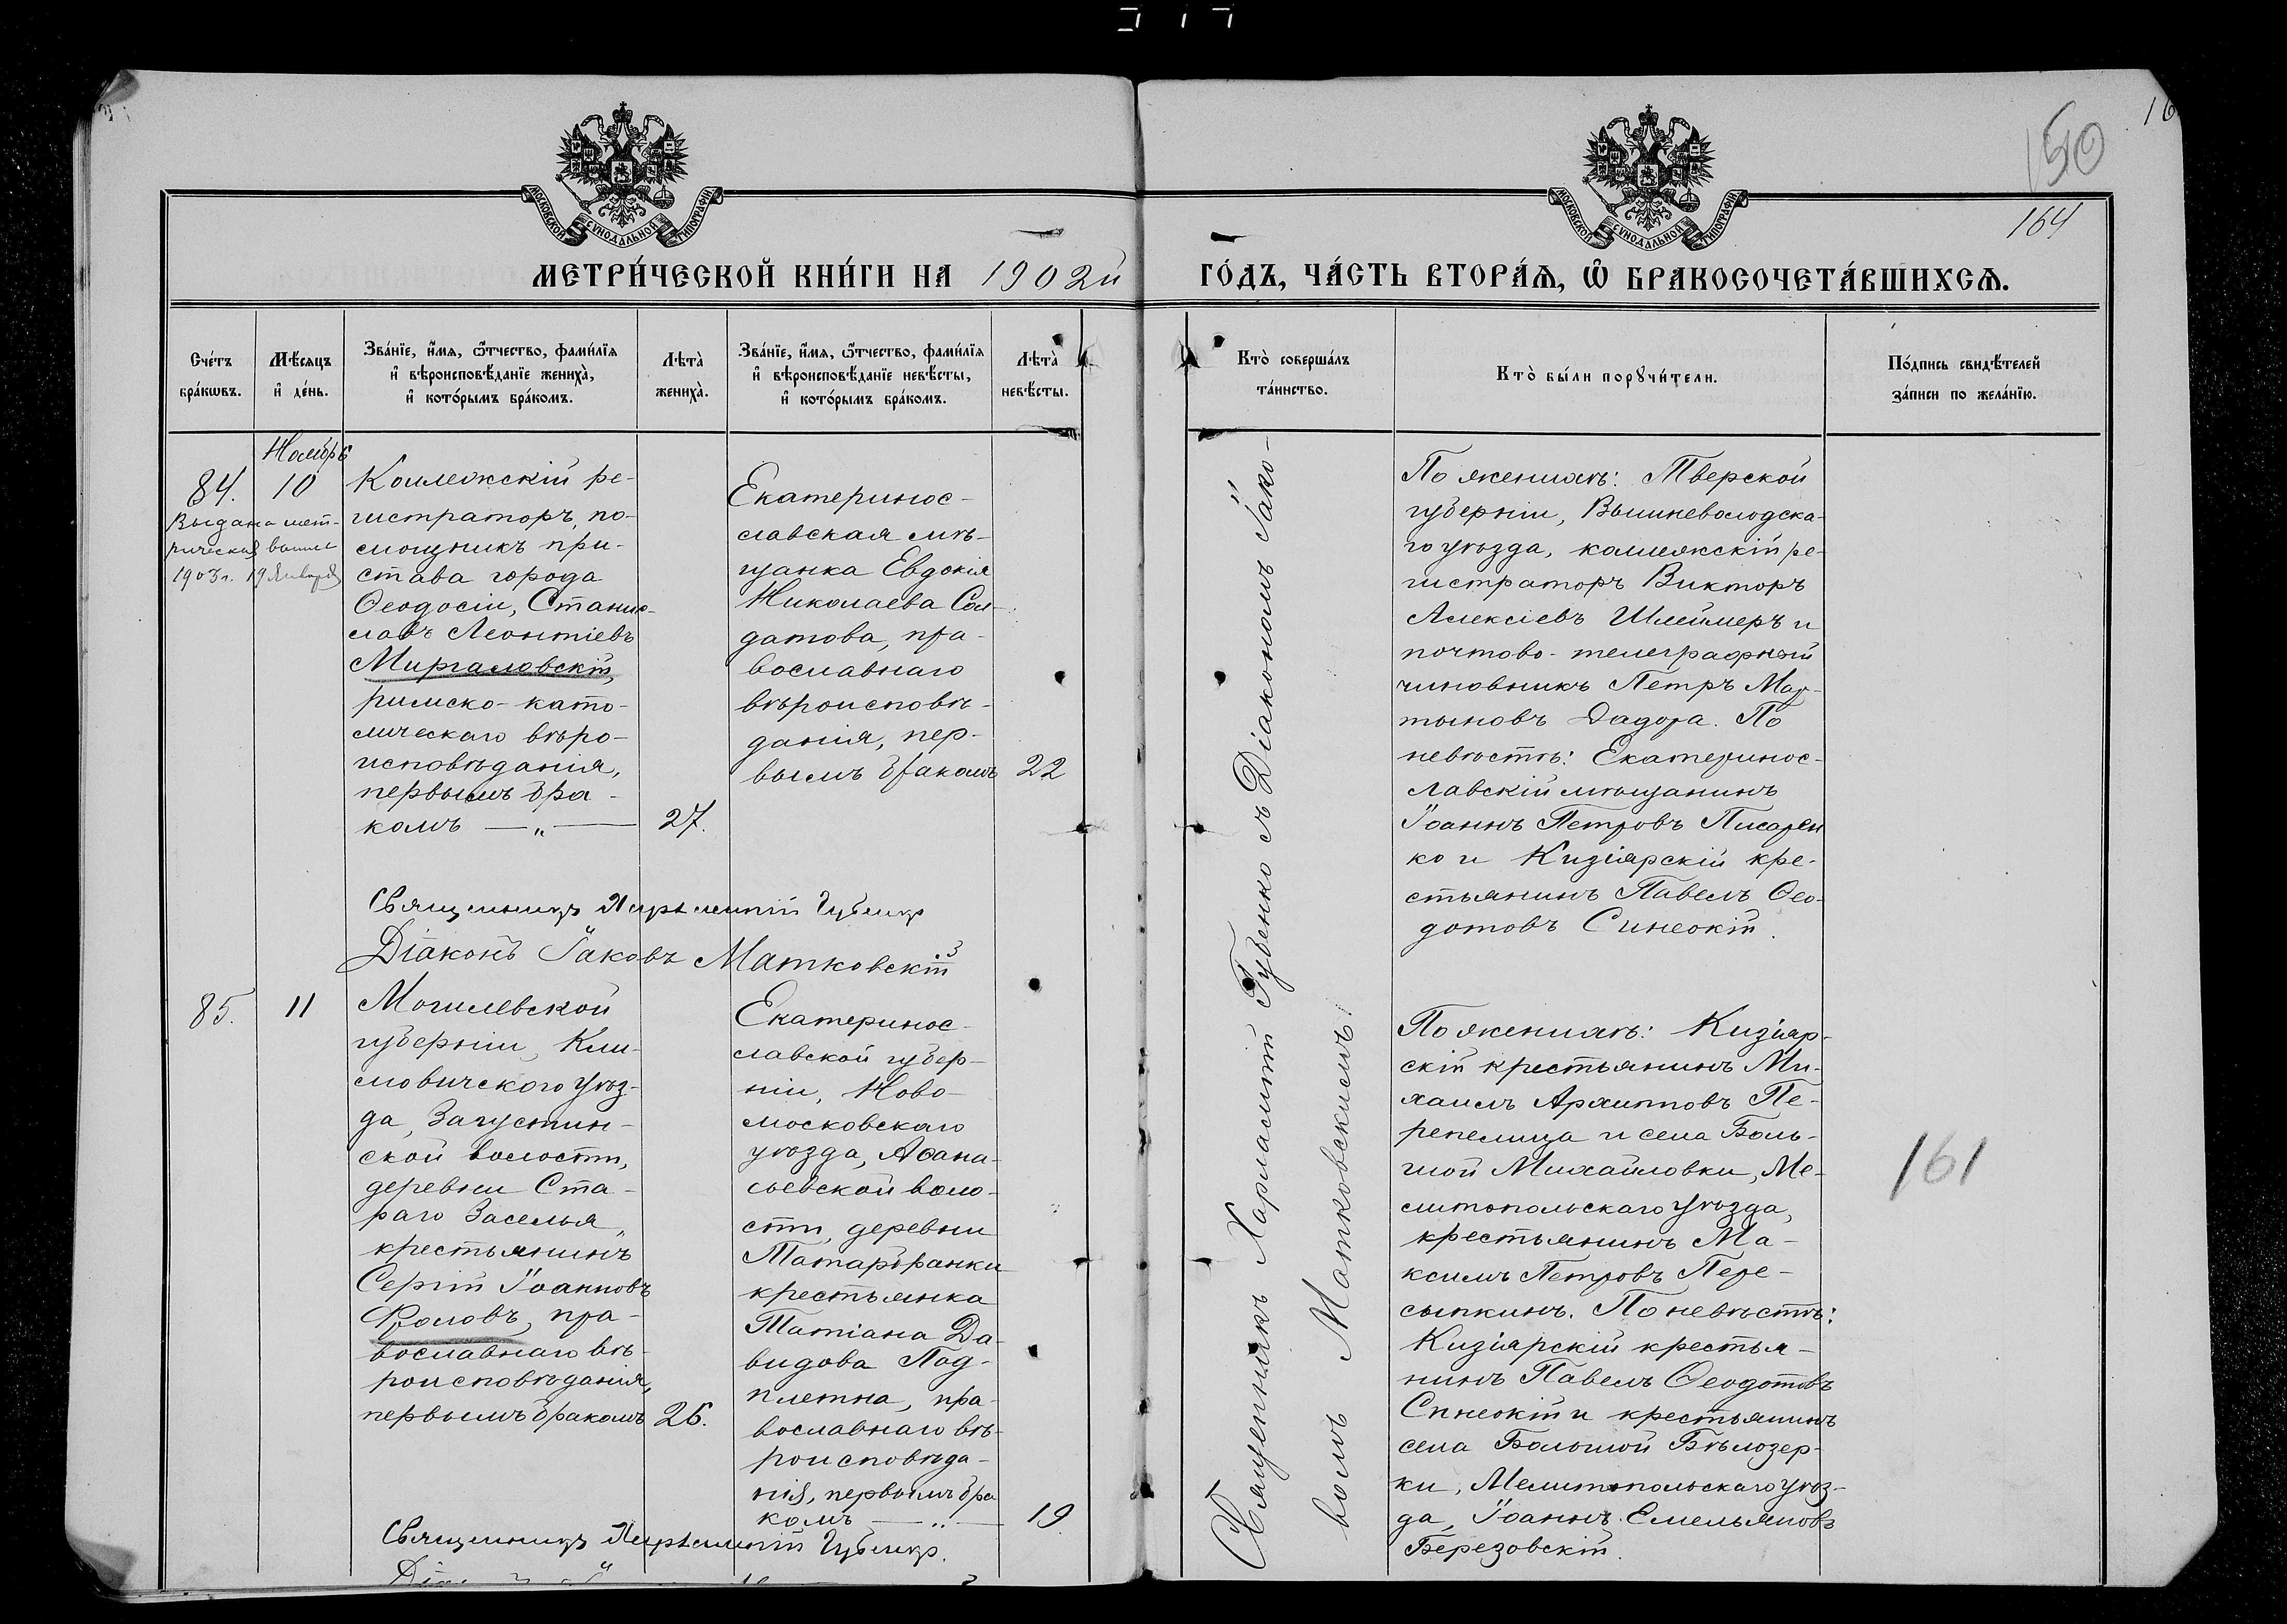 150
16
164
МОСКОВСКОЙ СѴНОДАЛЬНОЙ ТИПОГРАФІИ
МОСКОВСКОЙ СѴНОДАЛЬНОЙ ТИПОГРАФІИ
МЕТРИ́ЧЕСКОЙ КНИ́ГИ НА 1902й ГО́ДЪ, ЧА́СТЬ ВТОРА́Ѧ, Ѡ҆ БРАКОСОЧЕТА́ВШИХСѦ.
Сче́тъ
бра́кѡвъ.
Мѣ́сяцъ
и҆ де́нь.
Зва́нїе, и҆́мя, ѻ҆́тчество, фами́лїя
и҆ вѣроисповѣ́данїе жениха̀,
и҆ кото́рымъ бра́комъ.
Лѣта̀
жениха̀.
Зва́нїе, и҆́мя, ѻ҆́тчество, фами́лїя
и҆ вѣроисповѣ́данїе невѣ́сты,
и҆ кото́рымъ бра́комъ.
Лѣта̀
невѣ́сты.
Кто̀ соверша́лъ
та́инство.
Кто̀ бы́ли порꙋчи́тели.
По́дпись свидѣ́телей
за́писи по жела́нїю.
84.
Выдана мет-
рическая
1903 г. 19 Января
Ноябрь
10
Коллежскій ре-
гистраторъ, по-
мощникъ при-
става города
Ѳеодосіи, Станис-
лавъ Леонтіевъ
Миргаловскій,
римско-като-
лическаго вѣро-
исповѣданія,
первымъ бра-
комъ — „ —
27.
Екатеринос-
лавская мѣ-
щанка Евдокія
Николаева Сол-
датова, пра-
вославнаго
вѣроисповѣ-
данія, пер-
вымъ бракомъ
22
Священникъ Харлампій Губенко
Діаконъ Іаковъ Матковскій
Священникъ Харлампій Губенко съ Діакономъ Іако-
вомъ Матковскимъ.
По женихѣ: Тверской
губерніи, Вышневолодска-
го уѣзда, коллежскій ре-
гистраторъ Викторъ
Алексіевъ Шлеймеръ и
почтово-телеграфный
чиновникъ Петръ Мар-
тыновъ Дадора. По
невѣстѣ: Екатеринос-
лавскій мѣщанинъ
Іоаннъ Петровъ Писарен
ко и Кизіярскій кре-
стьянинъ Павелъ Ѳео-
дотовъ Синеокій.
85.
11
Могилевской
губерніи, Кли-
мовичскаго уѣз-
да, Загустин-
ской волости,
деревни Ста-
раго Заселья,
крестьянинъ
Сергій Іоанновъ
Фроловъ, пра-
вославнаго вѣ-
роисповѣданія,
первымъ бракомъ
26.
Екатеринос-
лавской губер-
ніи, Ново-
московскаго
уѣзда, Аѳана-
сьевской воло-
сти, деревни
Татарбранки
крестьянка
Татіана Да-
видова Под-
плетна, пра-
вославнаго вѣ-
роисповѣда-
нія, первымъ бра
комъ — „ —
19
Священникъ Харлампій Губенко.
По женихѣ: Кизіяр-
скій крестьянинъ Ми-
хаилъ Архипповъ Пе-
репелица и села Боль-
шой Михайловки, Ме-
литопольскаго уѣзда,
крестьянинъ Ма-
ксимъ Петровъ Пере-
сыпкинъ. По невѣстѣ:
Кизіярскій крестья-
нинъ Павелъ Ѳеодотовъ
Синеокій и крестьянинъ
села Большой Бѣлозер-
ки, Мелитопольскаго уѣз-
да, Іоаннъ Емельяновъ
Березовскій.
161